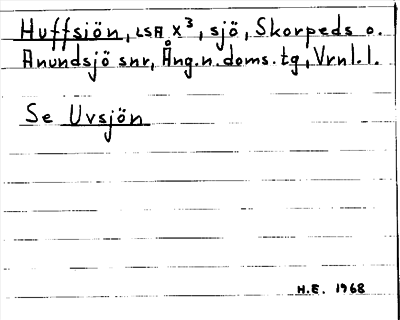 Huffsjön, LSA X³, sjö, Skorpeds o.
Anundsjö snr, Ång.n.doms.tg, Vrnl.l.
Se Uvsjön
H.E. 1968